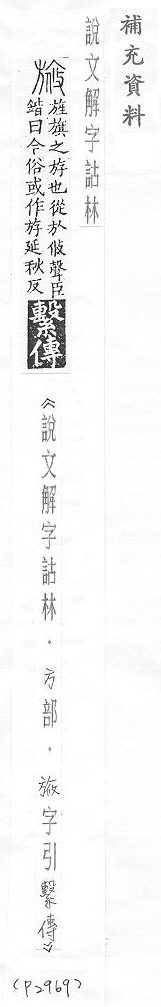 補充資料
說文解字詁林
旌旗之斿也從㫃攸聲臣
鍇曰今俗或作斿延秋反
繫傳
《說文解字詁林．方部．字引繫傳》
(P2969)